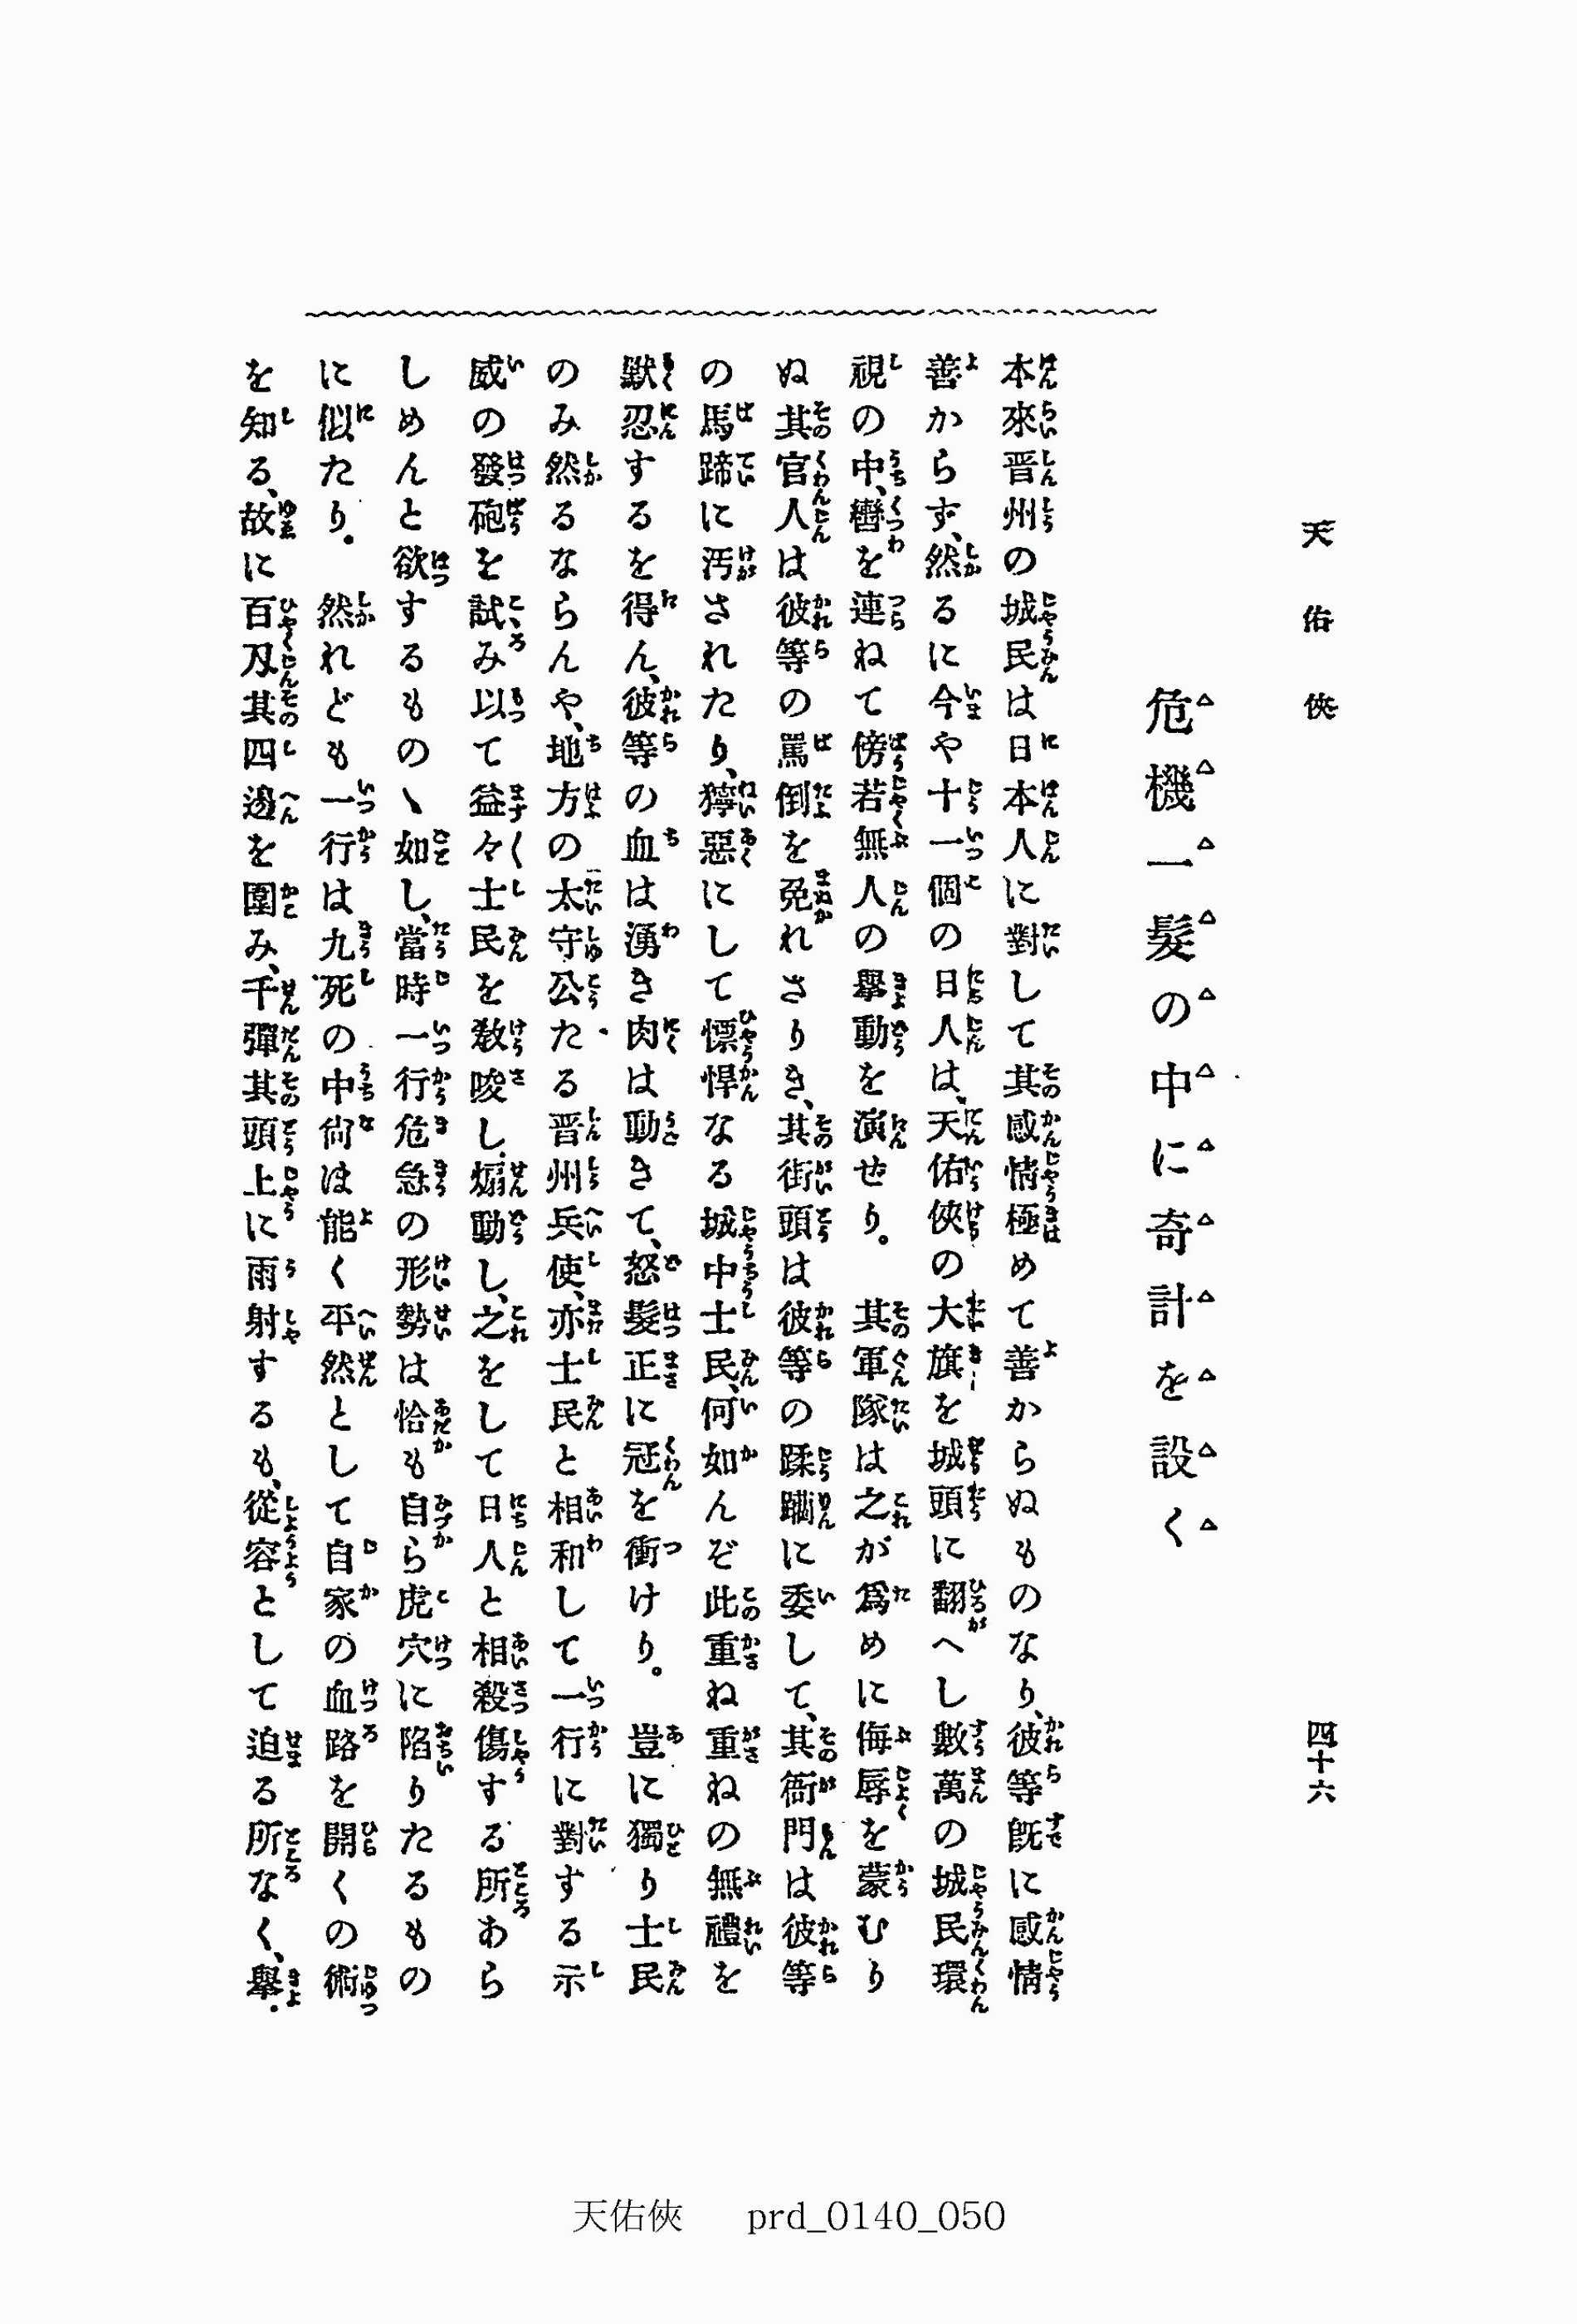 天佑俠
四十六
危機一髮の中に奇計を設く
本來晋州の城民は日本人に對して其感情極めて善からぬものなり、彼等既に感情
善からず、然るに今や十一個の日人は、天佑俠の大旗を城頭に翻へし數萬の城民環
視の中、轡を連ねて傍若無人の擧動を演せり。其軍隊は之が爲めに侮辱を蒙むり
ぬ其官人は彼等の罵倒を免れさりき、其街頭は彼等の蹂躪に委して、其衙門は彼等
の馬蹄に汚されたり、獰惡にして慓悍なる城中士民、何如んぞ此重ね重ねの無禮を
默忍するを得ん、彼等の血は湧き肉は動きて、怒髮正に冠を衝けり。豈に獨り士民
のみ然るならんや、地方の太守公たる晋州兵使、亦士民と相和して一行に對する示
威の發砲を試み以て益々士民を敎唆し、煽動し、之をして日人と相殺傷する所あら
しめんと欲するものゝ如し、當時一行危急の形勢は恰も自ら虎穴に陷りたるもの
に似たり。然れども一行は九死の中尙は能く平然として自家の血路を開くの術
を知る、故に百刄其四邊を圍み、千彈其頭上に雨射するも、從容として迫る所なく、擧
天佑俠 prd_0140_050